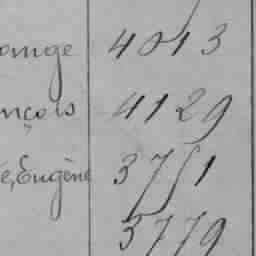 onge 4013
nçois 4129
e, Eugène 3751
3779